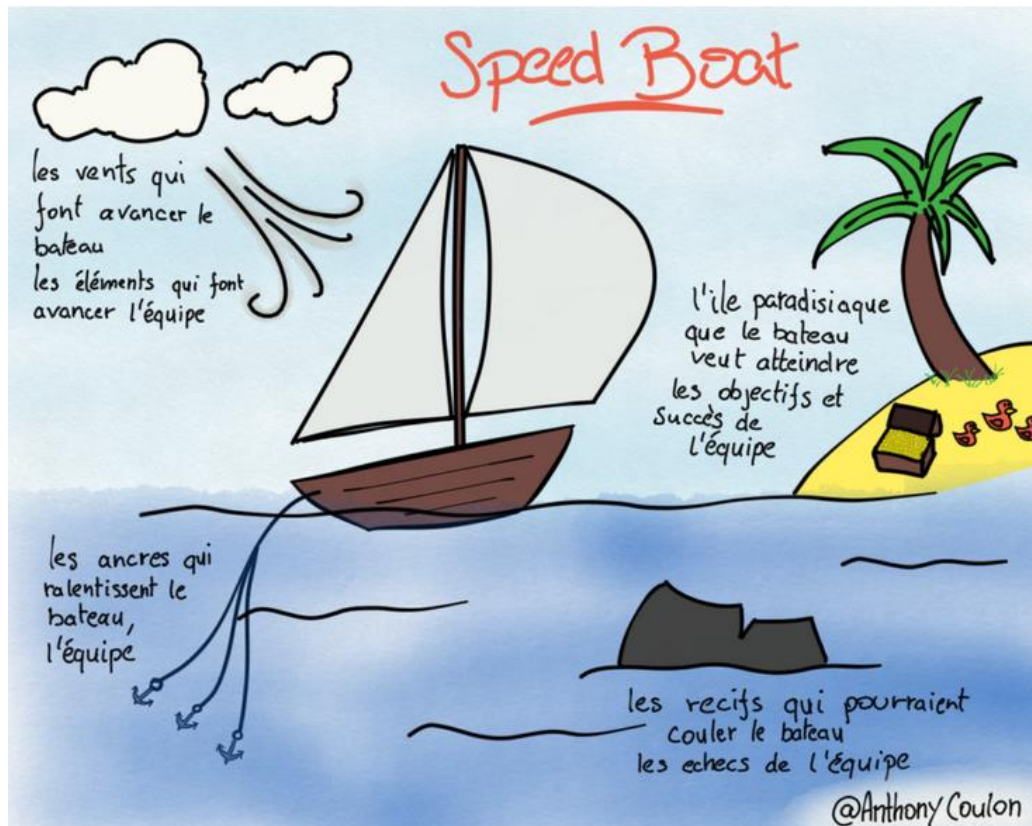 Speed Boat
les vents qui
font avancer le
bateau
les éléments qui font
avancer l'équipe
l'ile paradisiaque
que le bateau
veut atteindre
les objectifs et
succès de
l'équipe
les ancres qui
ralentissent le
bateau,
l'équipe
les recifs qui pourraient
couler le bateau
les echecs de l'équipe
@Anthony Coulon